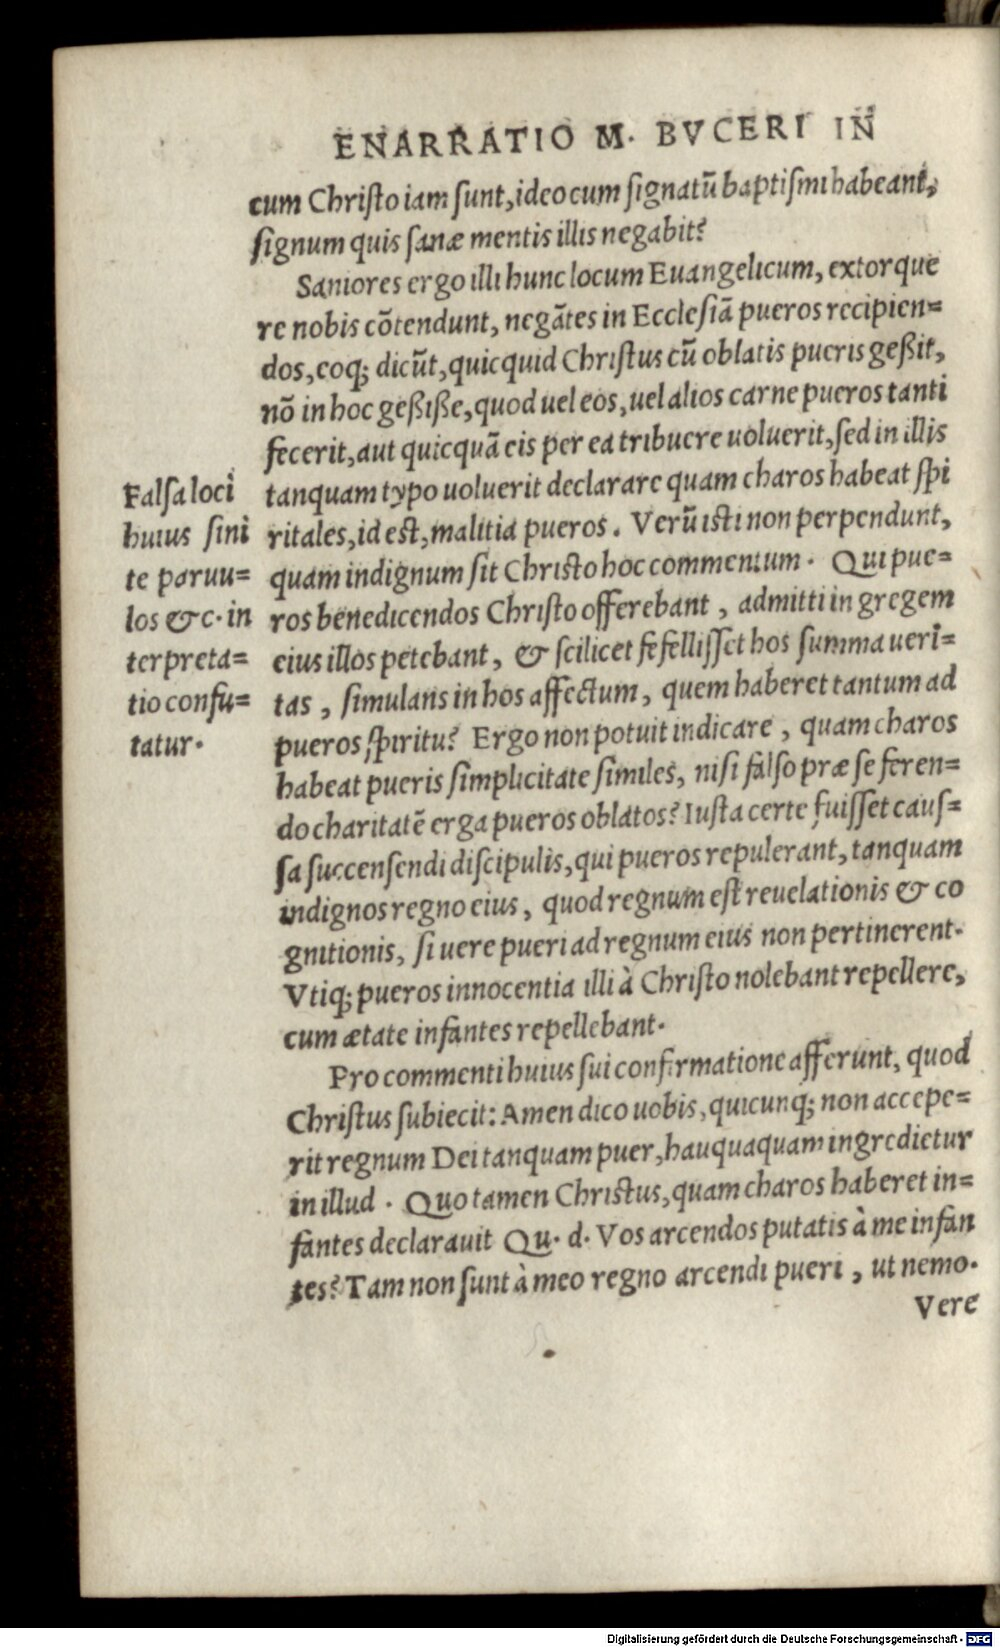 ENARRATIO M. BVCERI IN
cum Chriſto iam ſunt, ideo cum ſignatũ baptiſmi habeant,
ſignum quis ſanæ mentis illis negabit?
Saniores ergo illi hunc locum Euangelicum, extorque
re nobis cõtendunt, negãtes in Eccleſiã pueros recipien=
dos, eoq; dicũt, quicquid Chriſtus cũ oblatis pueris geßit,
nõ in hoc geßiße, quod uel eos, uel alios carne pueros tanti
fecerit, aut quicquã eis per ea tribuere uoluerit, ſed in illis
tanquam typo uoluerit declarare quam charos habeat ſpi
ritales, id eſt, malitia pueros. Verũ iſti non perpendunt,
quam indignum ſit Chriſto hoc commentum. Qui pue=
ros benedicendos Chriſto offerebant, admitti in gregem
eius illos petebant, & ſcilicet fefelliſſet hos ſumma ueri=
tas, ſimulans in hos affectum, quem haberet tantum ad
pueros ſpiritu? Ergo non potuit indicare, quam charos
habeat pueris ſimplicitate ſimiles, niſi falſo præ ſe feren=
do charitatẽ erga pueros oblatos? Iuſta certe fuiſſet cauſ=
ſa ſuccenſendi diſcipulis, qui pueros repulerant, tanquam
indignos regno eius, quod regnum eſt reuelationis & co
gnitionis, ſi uere pueri ad regnum eius non pertinerent.
Vtiq; pueros innocentia illi à Chriſto nolebant repellere,
cum ætate infantes repellebant.
Pro commenti huius ſui confirmatione afferunt, quod
Chriſtus ſubiecit: Amen dico uobis, quicunq; non accepe=
rit regnum Dei tanquam puer, hauquaquam ingredietur
in illud. Quo tamen Chriſtus, quam charos haberet in=
fantes declarauit Qu. d. Vos arcendos putatis à me infan
tes? Tam non ſunt à meo regno arcendi pueri, ut nemo.
Vere
Falſa loci
huius ſini
te paruu=
los &c. in
terpreta=
tio confu=
tatur.
Digitalisierung gefördert durch die Deutsche Forschungsgemeinschaft - DFG